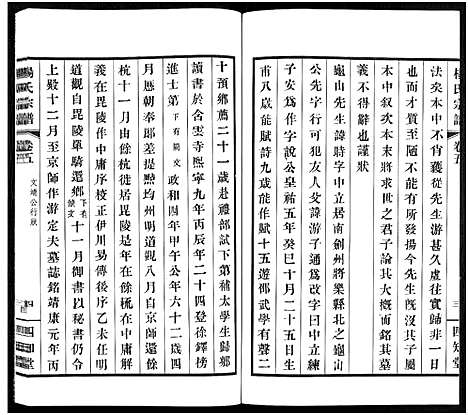 楊氏宗譜 卷五
三
四知堂
法矣本中不肖竊從先生游甚久虛往實歸非一日
也而才質至下不能發揚今先生既沒其子以
本中次本末將求世之君子論其大槩而銘其墓
義不得辭也謹狀
龜山先生諱時字中立居南劍州將樂縣北之龜山
公先字行可犯友人女諱游子孫遂爲改字曰中立練
子安爲作字說公皇祐五年癸巳十月二十五日生
甫八歲能作詩九歲能作賦十五遊邵武學有聲二
十預鄉薦二十一歲赴禮部試下第補太學生歸鄉
讀書於含雲寺熙寧九年丙辰年二十四登徐鐸榜
進士第下有闕文政和四年甲午公年六十二歲四
月歷朝奉郎差提點均州明道觀八月自京師還餘
杭十一月由餘杭徙居毘陵是年在餘杭作中庸解
義在毘陵作中庸序校正伊川易傳後序之未任明
道觀自毘陵單騎還鄉下有缺文十一月御書以秘書仍令
上殿十二月至京師作游定夫墓誌銘靖康元年丙
楊氏宗譜 卷五
文靖公行狀
四
四知堂